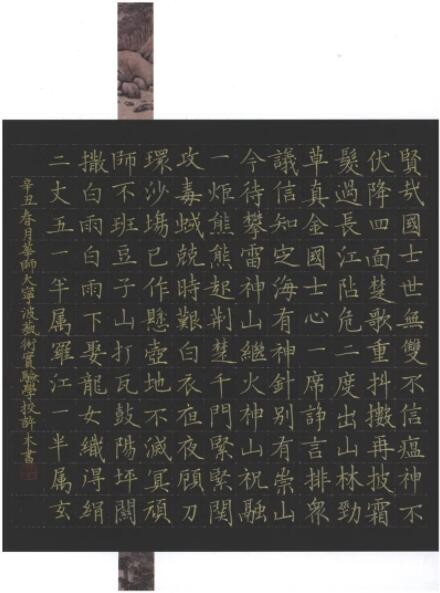 賢哉國士世無雙不信瘟神不
伏降四面楚歌重抖擻再披霜
髮過長江阽危二度出山林勁
草真金國士心一席諍言排衆
議信知定海有神針別有崇山
今待攀雷神山繼火神山祝融
一炬熊熊起荆楚千門緊緊関
攻毒蜮兢時艱白衣亱夜顧刀
環沙塲已作懸壺地不滅冥頑
師不班豆子山打瓦鼓陽坪關
撒白雨白雨下娶龍女織得絹
二丈五一半属羅江一半属玄
辛丑春月華師大寧波藝術實驗學校許未書